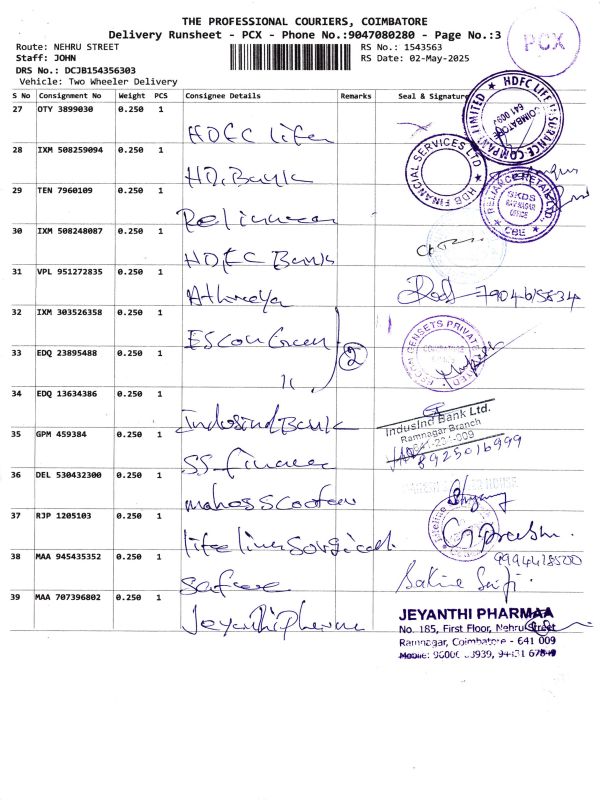 THE PROFESSIONAL COURIERS, COIMBATORE
Delivery Runsheet - PCX - Phone No.:9047080280 - Page No.:3
PCX
Route: NEHRU STREET
RS No.: 1543563
Staff: JOHN
RS Date: 02-May-2025
DRS No.: DCJB154356303
Vehicle: Two Wheeler Delivery
S No Consignment No Weight PCS Consignee Details Remarks Seal & Signature
27 OTY 3899030 0.250 1
HDFC Life
HDFC LIFE INSURANCE COMPANY LIMITED
COIMBATORE
641 009
28 IXM 508259094 0.250 1
HD. Bank
HDB FINANCIAL SERVICES LTD
29 TEN 7960109 0.250 1
Reliance
RELIANCE RETAIL LTD
SKDS
RAM NAGAR
OFFICE
CBE
30 IXM 508248087 0.250 1
HDFC Bank
31 VPL 951272835 0.250 1
Athreya
7904615834
32 IXM 303526358 0.250 1
ESCon Green
2
ESCON GENSETS PRIVATE LIMITED
COIMBATORE
33 EDQ 23895488 0.250 1
34 EDQ 13634386 0.250 1
IndusInd Bank
IndusInd Bank Ltd.
Ramnagar Branch
641-201-009
35 GPM 459384 0.250 1
8925016999
SS-finance
36 DEL 530432300 0.250 1
mahesScooter
37 RJP 1205103 0.250 1
life line Sorgical
Lifeline
38 MAA 945435352 0.250 1
9994418500
Safire
Sakina Saifi.
39 MAA 707396802 0.250 1
Jeyanthi Pharma
JEYANTHI PHARMAA
No. 185, First Floor, Nehru Street
Ramnagar, Coimbatore - 641 009
Mobile: